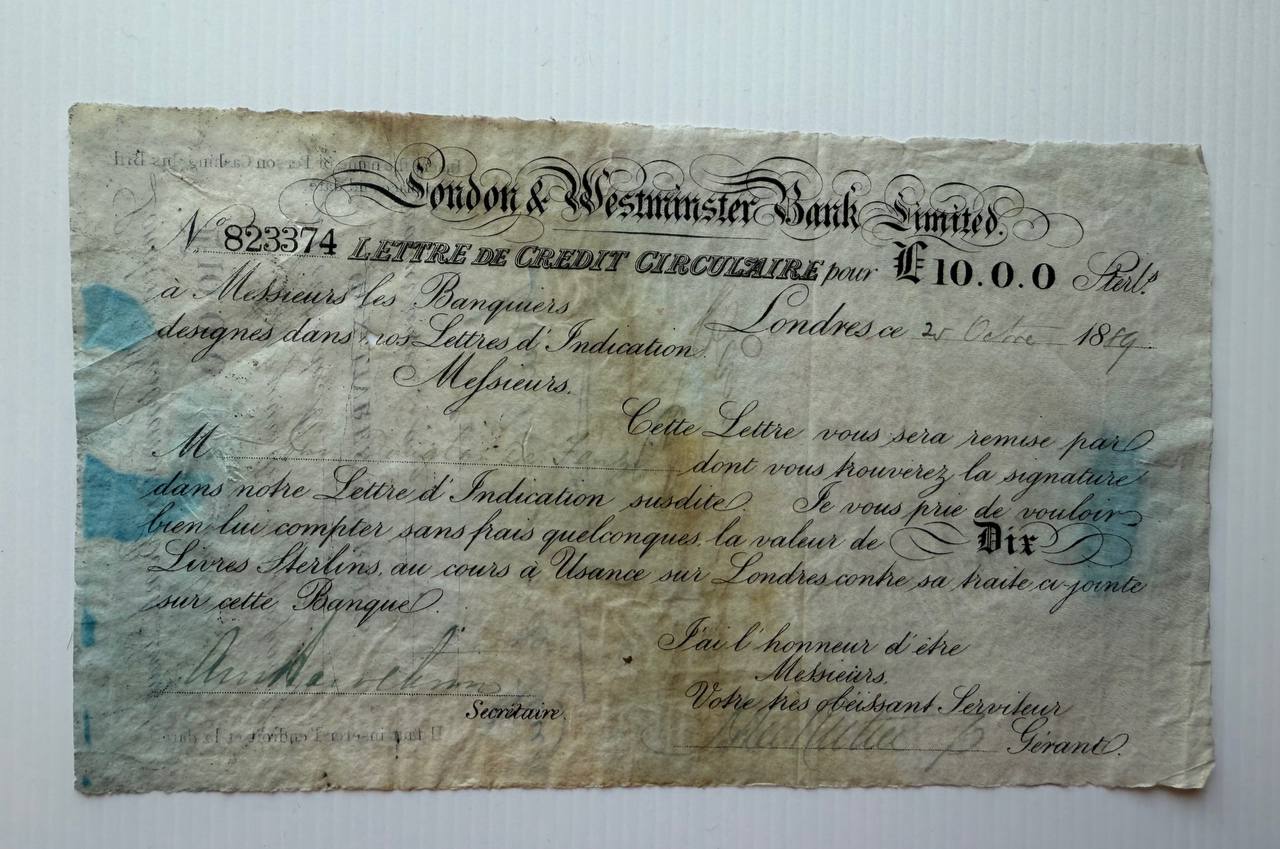 London & Westminster Bank Limited.
No 823374 LETTRE DE CREDIT CIRCULAIRE pour £10.0.0 Sterls.
à Messieurs les Banquiers
designes dans nos Lettres d'Indication.
Londres, ce 25 Octre 1889.
Messieurs.
Cette Lettre vous sera remise par
M dont vous trouverez la signature
dans notre Lettre d'Indication susdite. Je vous prie de vouloir
bien lui compter sans frais quelconques, la valeur de Dix
Livres Sterlins, au cours à Usance sur Londres contre sa traite ci-jointe
sur cette Banque.
J'ai l'honneur d'être
Messieurs,
Votre très obéissant Serviteur
Secrétaire.
Gérant.
Il faut insérer l'endroit et la date